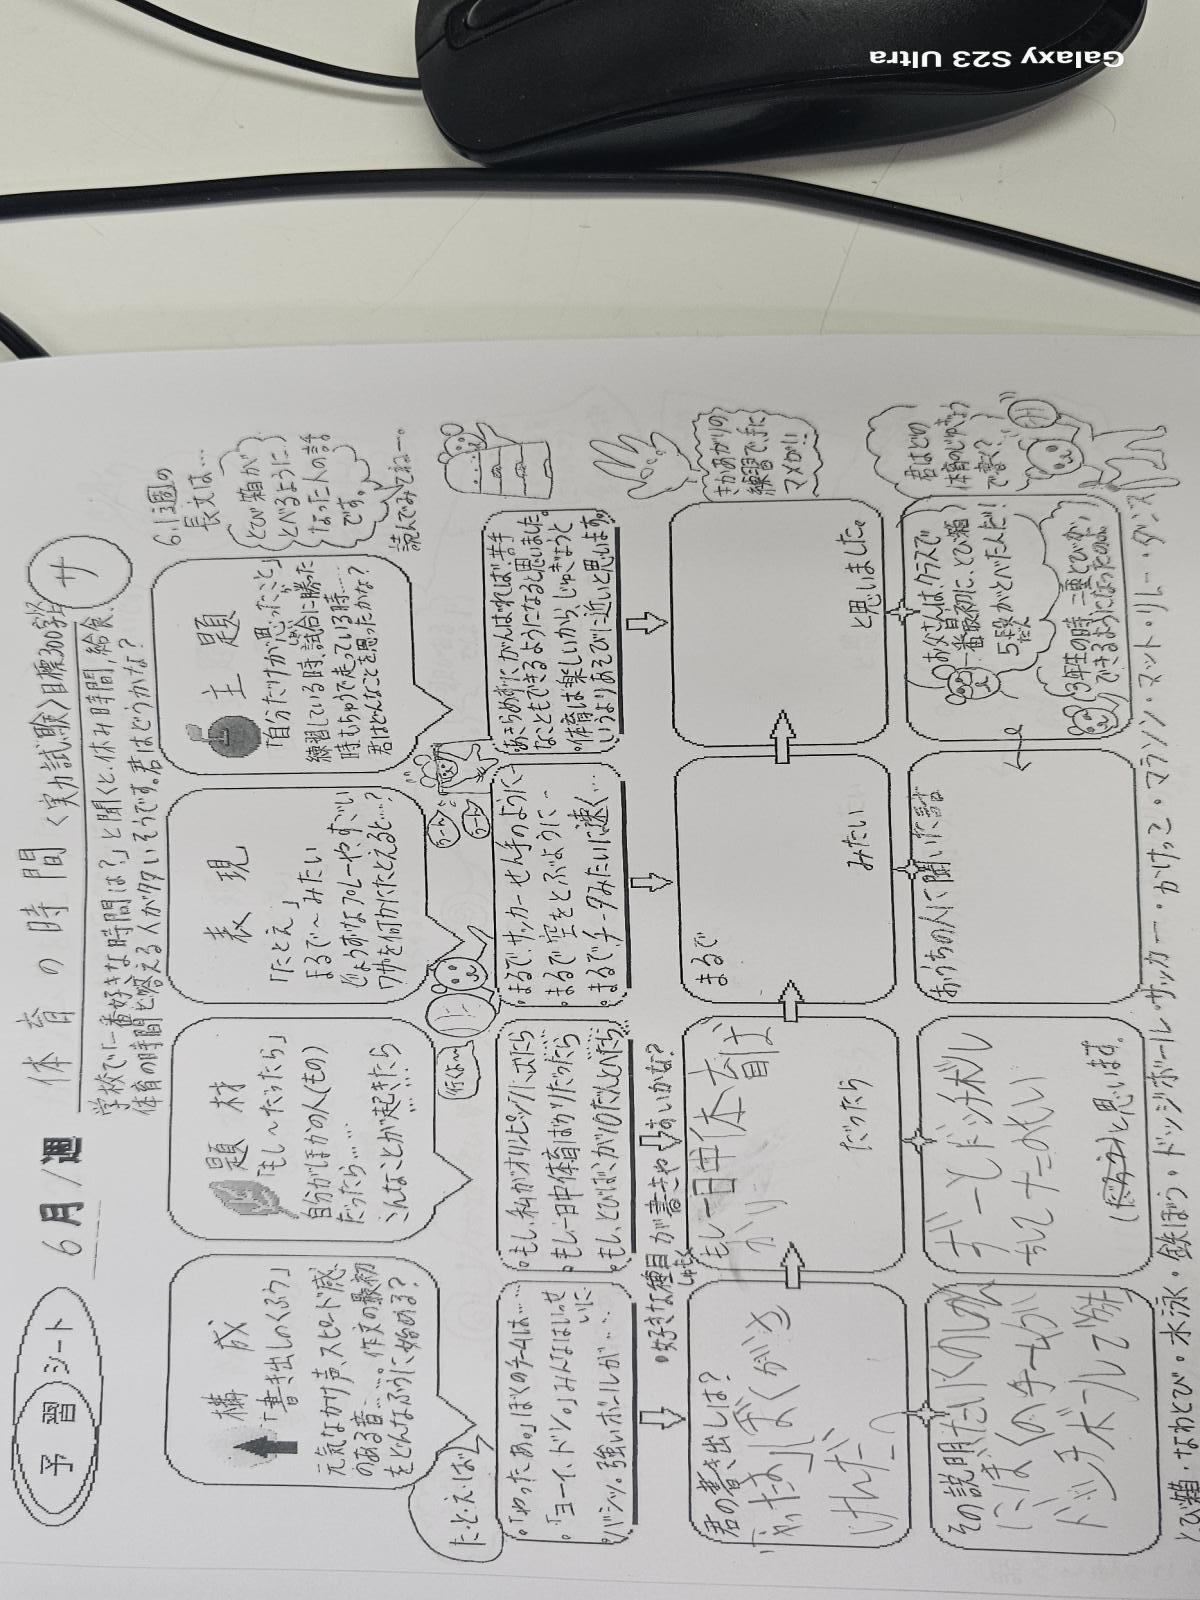 予習シート
6月1週
体育の時間
<実力試験>目標300字
サ
学校で「一番好きな時間は？」と聞くと、休み時間、給食、
体育の時間と答える人が多いそうです。君はどうかな？
構成
「書き出しのくふう」
元気なかけ声、スピード感
のある音……。作文の最初
をどんなふうに始める？
題材
「もし～だったら」
自分がほかの人（もの）
だったら……
こんなことが起きたら
……
表現
「たとえ」
まるで～みたい
じょうずなプレーや、すごい
ワザを何かにたとえると…？
主題
「自分だけが思ったこと」
練習している時、試合に勝った
時、もちゅうで走っている時……
君はどんなことを思ったかな？
6.1週の
長文は…
とび箱が
とべるように
なった人の話
です。
読んでみてねー。
た・と・え・ば
「やったあ。」ぼくのチームは……
「ヨーイ、ドン。」みんなはいっせ
いに…
バシッ。強いボールが……
行くよ～
もし、私がオリンピックに出たら
もし、一日中体育ばかりだったら
もし、とびばこが10だんとべたら…
まるでサッカーせん手のように…
まるで空をとぶように…
まるでチータみたいに速く…
あきらめずにがんばれば、苦手
なこともできるようになると思いました。
体育は楽しいから、じゅぎょうと
いうよりあそびに近いと思います。
好きな種目が書きやすいかな？
しゅもく
君の書き出しは？
「やったま」ぼくが
もし一日中体育ば
かり
だったら
まるで
みたい
と思いました。
さかあがりの
練習で、手に
マメが!!
その説明
ドッチボール
ちしてたのしい
（だろう）と思います。
おうちの人に聞いた話
お父さんは、クラスで
一番最初に、とび箱
5段がとべた人だ！
だん
3年生の時、二重とびが
できるようになったのよ。
君はどの
体育のじゅぎょう
で書く？
とび箱・なわとび・水泳・鉄ぼう・ドッジボール・サッカー・かけっこ・マラソン・マット・リレー・ダンス
Galaxy S23 Ultra